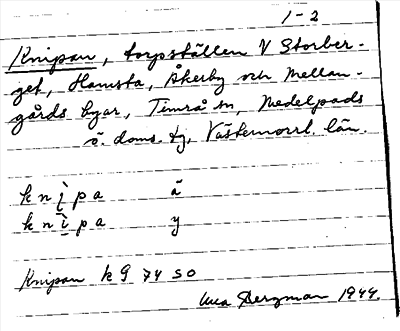 1-2
Knipan, torpställen V Storber-
get, Hamsta, Åkerby och Mellan-
gårds byar, Timrå sn, Medelpads
ö. doms. tj, Västernorrl. län.
knì̭pa ä
knì̭pa y
Knipan k9 74 SO
Bergman 1944.